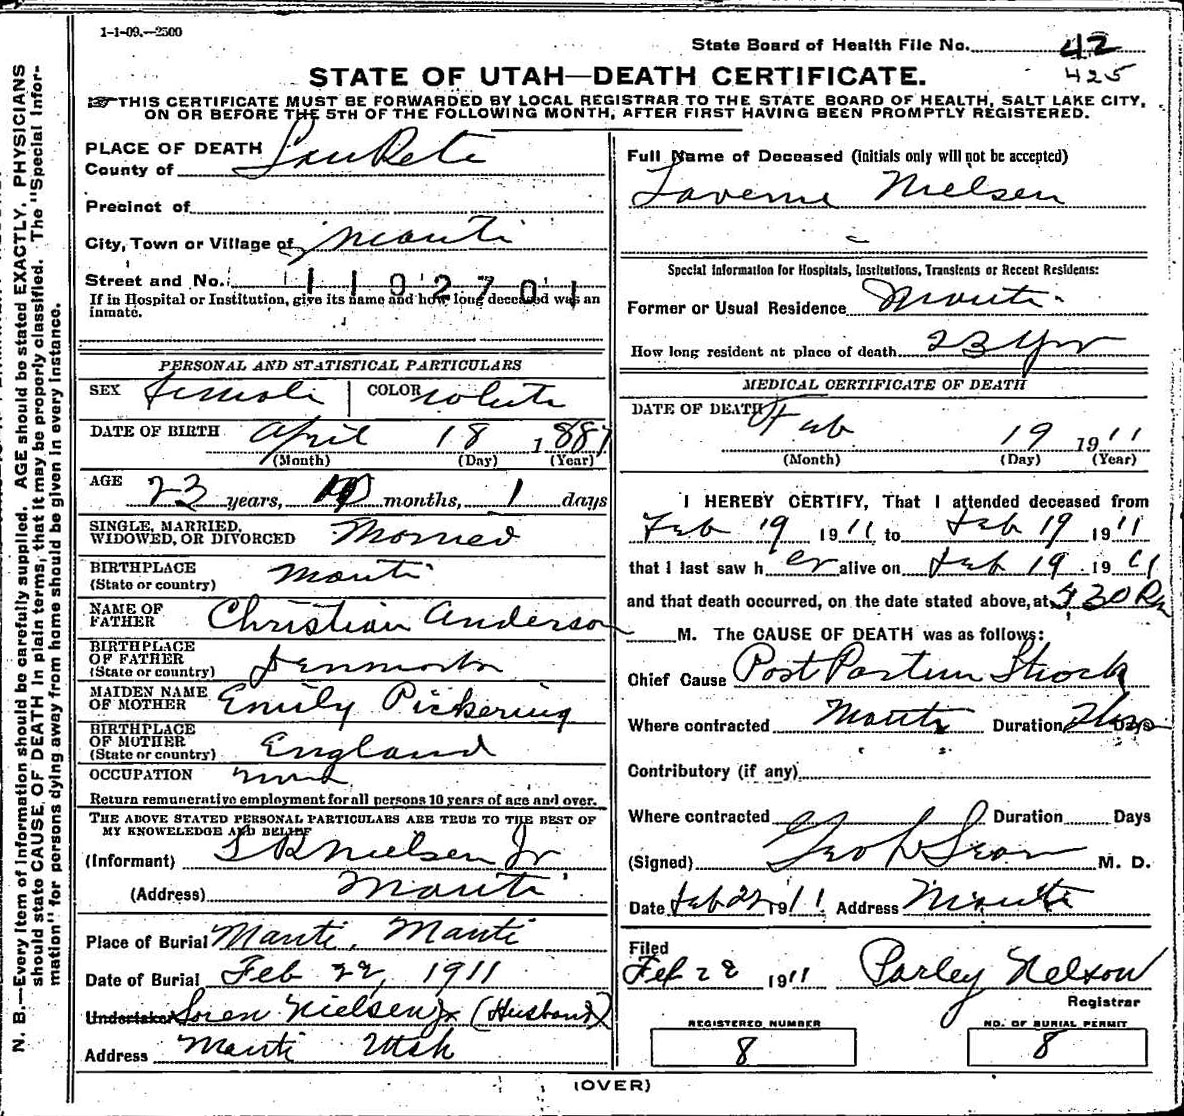 1-1-09.—2500
State Board of Health File No. 42
425
STATE OF UTAH—DEATH CERTIFICATE.
THIS CERTIFICATE MUST BE FORWARDED BY LOCAL REGISTRAR TO THE STATE BOARD OF HEALTH, SALT LAKE CITY,
ON OR BEFORE THE 5TH OF THE FOLLOWING MONTH, AFTER FIRST HAVING BEEN PROMPTLY REGISTERED.
N. B.—Every item of information should be carefully supplied. AGE should be stated EXACTLY, PHYSICIANS
should state CAUSE OF DEATH in plain terms, that it may be properly classified. The "Special Infor-
mation" for persons dying away from home should be given in every instance.
PLACE OF DEATH
County of SanPete
Precinct of
City, Town or Village of Manti
Street and No.
1 1 0 2 7 0 1
If in Hospital or Institution, give its name and how long deceased was an
inmate.
PERSONAL AND STATISTICAL PARTICULARS
SEX Female COLOR White
DATE OF BIRTH April 18 1887
(Month) (Day) (Year)
AGE 23 years, 10 months, 1 days
SINGLE, MARRIED,
WIDOWED, OR DIVORCED Married
BIRTHPLACE
(State or country) Manti
NAME OF
FATHER Christian Anderson
BIRTHPLACE
OF FATHER
(State or country) Denmark
MAIDEN NAME
OF MOTHER Emily Pickering
BIRTHPLACE
OF MOTHER
(State or country) England
OCCUPATION
Return remunerative employment for all persons 10 years of age and over.
THE ABOVE STATED PERSONAL PARTICULARS ARE TRUE TO THE BEST OF
MY KNOWELEDGE AND BELIEF
(Informant) S R Nielsen Jr
(Address) Manti
Place of Burial Manti, Manti
Date of Burial Feb 22, 1911
Undertaker Soren Nielsen Jr (Husband)
Address Manti Utah
Full Name of Deceased (initials only will not be accepted)
Laverne Nielsen
Special Information for Hospitals, Institutions, Transients or Recent Residents:
Former or Usual Residence Manti
How long resident at place of death 23 Yrs
MEDICAL CERTIFICATE OF DEATH
DATE OF DEATH Feb 19 1911
(Month) (Day) (Year)
I HEREBY CERTIFY, That I attended deceased from
Feb 19 1911 to Feb 19 1911
that I last saw her alive on Feb 19 1911
and that death occurred, on the date stated above, at 30 Pm
M. The CAUSE OF DEATH was as follows:
Chief Cause Post Partum Shock
Where contracted Manti Duration Days
Contributory (if any)
Where contracted Duration Days
(Signed) Geo L M. D.
Date Feb 22 1911 Address Manti
Filed
Feb 22 1911 Parley Nelson
Registrar
REGISTERED NUMBER
8
NO. OF BURIAL PERMIT
8
(OVER)